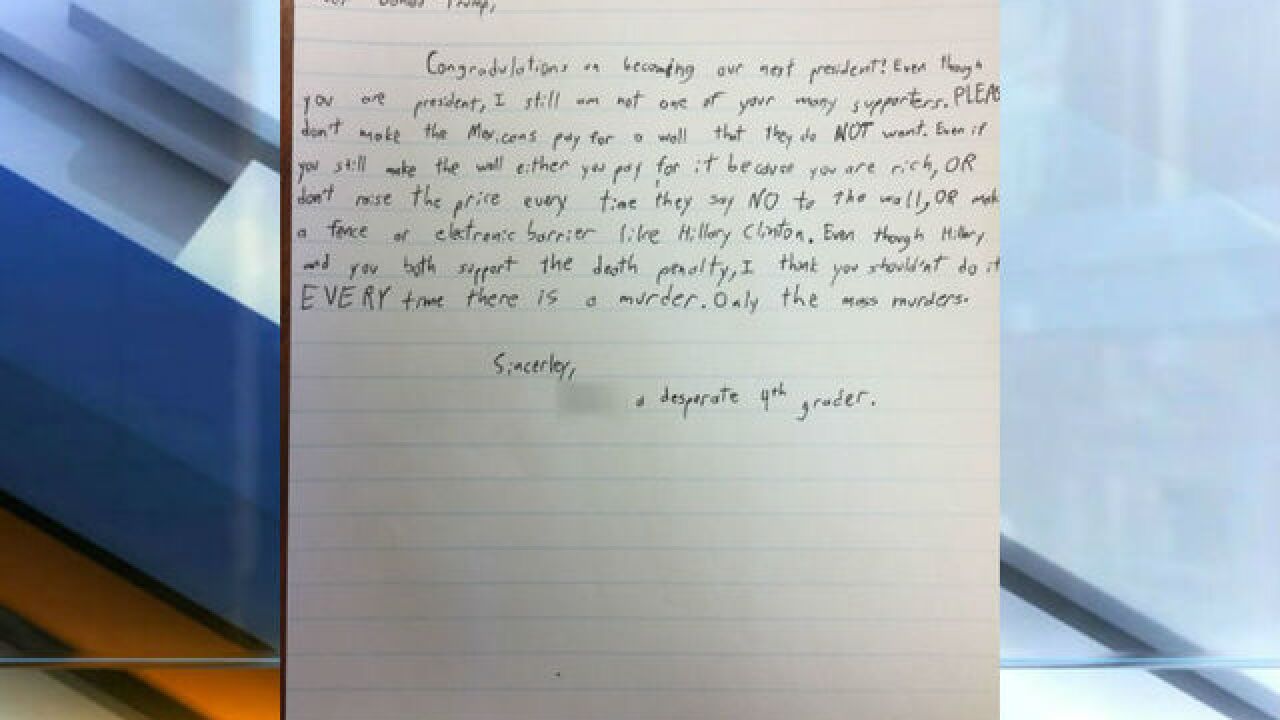 Donald Trump,
Congradulations on becoming our next president! Even though
you are president, I still am not one of your many supporters. PLEAS
don't make the Mexicans pay for a wall that they do NOT want. Even if
you still make the wall either you pay for it because you are rich, OR
don't raise the price every time they say NO to the wall, OR mak
a fence or electronic barrier like Hillary Clinton. Even though Hillary
and you both support the death penalty, I think you shouldn't do it
EVERY time there is a murder. Only the mass murders.
Sincerley,
a desparate 4th grader.